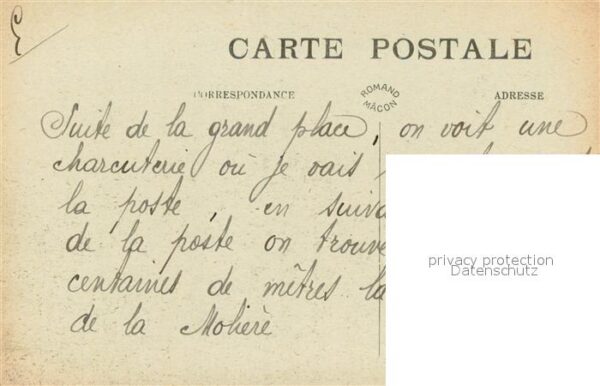 CARTE POSTALE
CORRESPONDANCE
ROMAND MÂCON
ADRESSE
Suite de la grand place, on voit une
charcuterie où je vais
la poste, en suiva
de la poste on trouve
centaines de mêtres la
de la Molière
privacy protection
Datenschutz